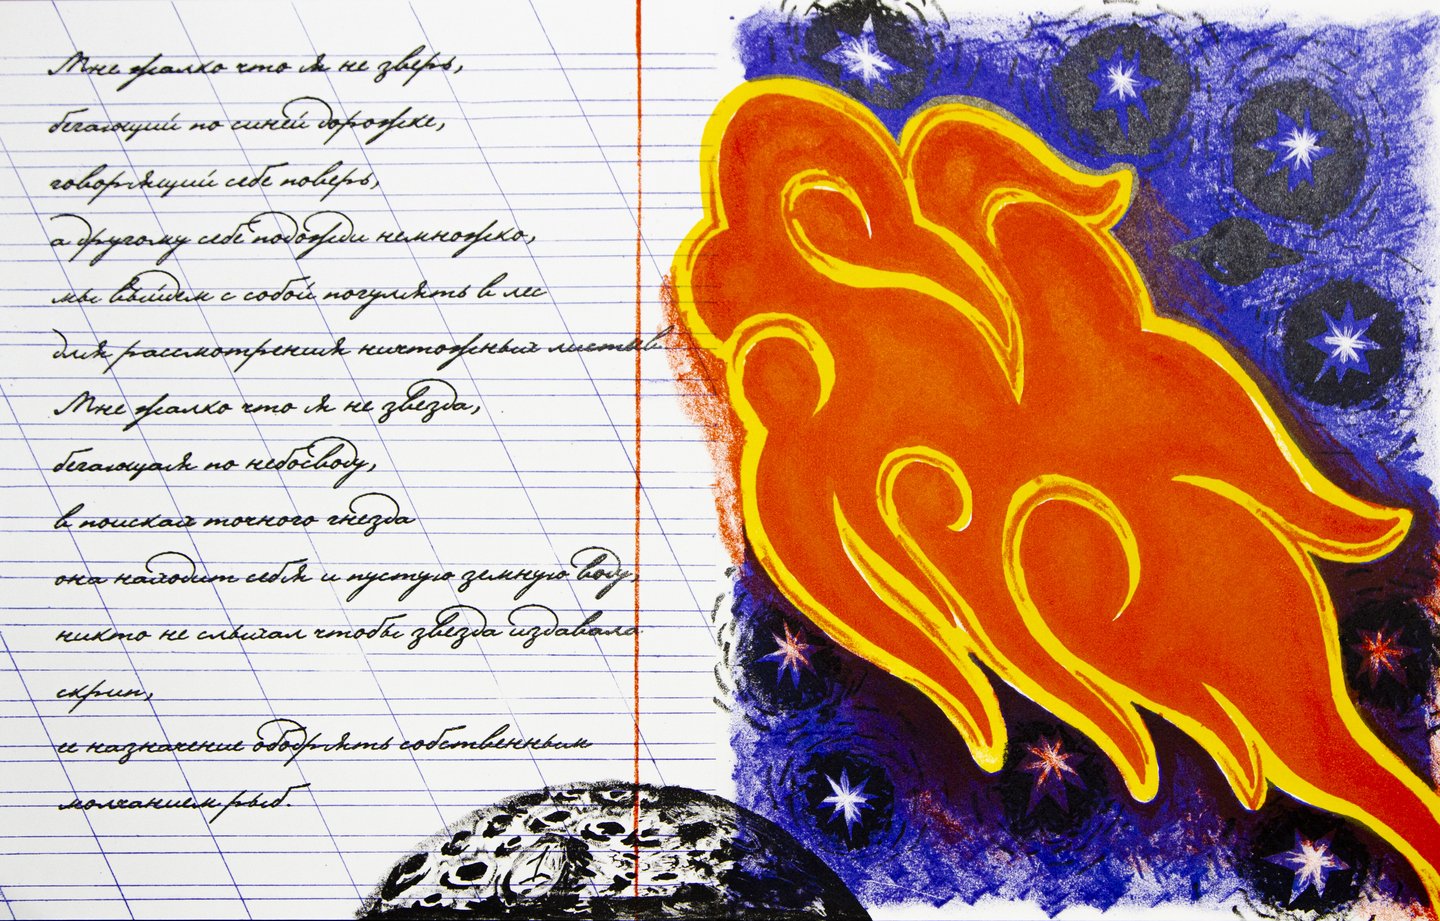 Мне жалко что я не зверь,
бегающий по синей дорожке,
говорящий себе поверь,
а другому себе подожди немножко,
мы выйдем с собой погулять в лес
для рассмотрения ничтожных листьев
Мне жалко что я не звезда,
бегающая по небосводу,
в поисках точного гнезда
она находит себя и пустую земную воду,
никто не слыхал чтобы звезда издавала
скрип,
ее назначение ободрять собственным
молчанием рыб.